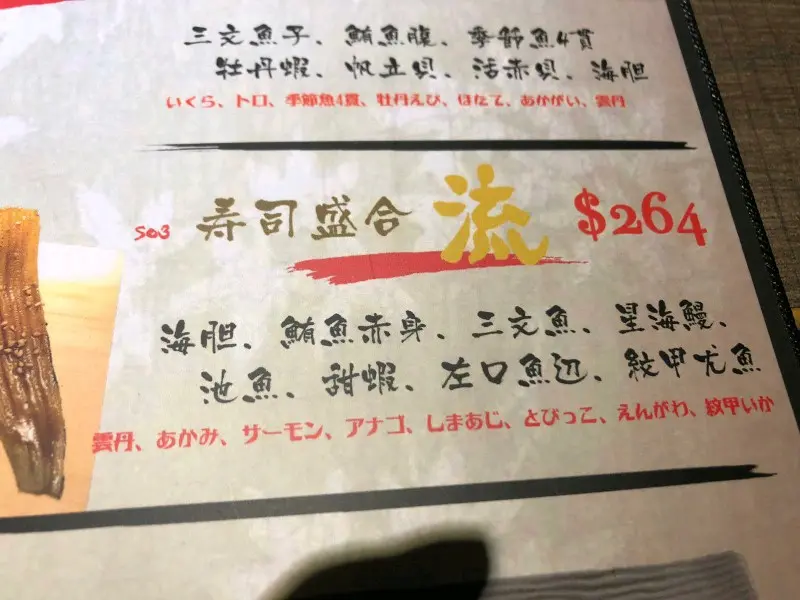 三文魚子、鮪魚腹、季節魚4貫
牡丹蝦、帆立貝、活赤貝、海胆
いくら、トロ、季節魚4貫、牡丹えび、ほたて、あかがい、雲丹
S03 寿司盛合 流 $264
海胆、鮪魚赤身、三文魚、星海鰻、
池魚、甜蝦、左口魚辺、紋甲尤魚
雲丹、あかみ、サーモン、アナゴ、しまあじ、とびっこ、えんがわ、紋甲いか